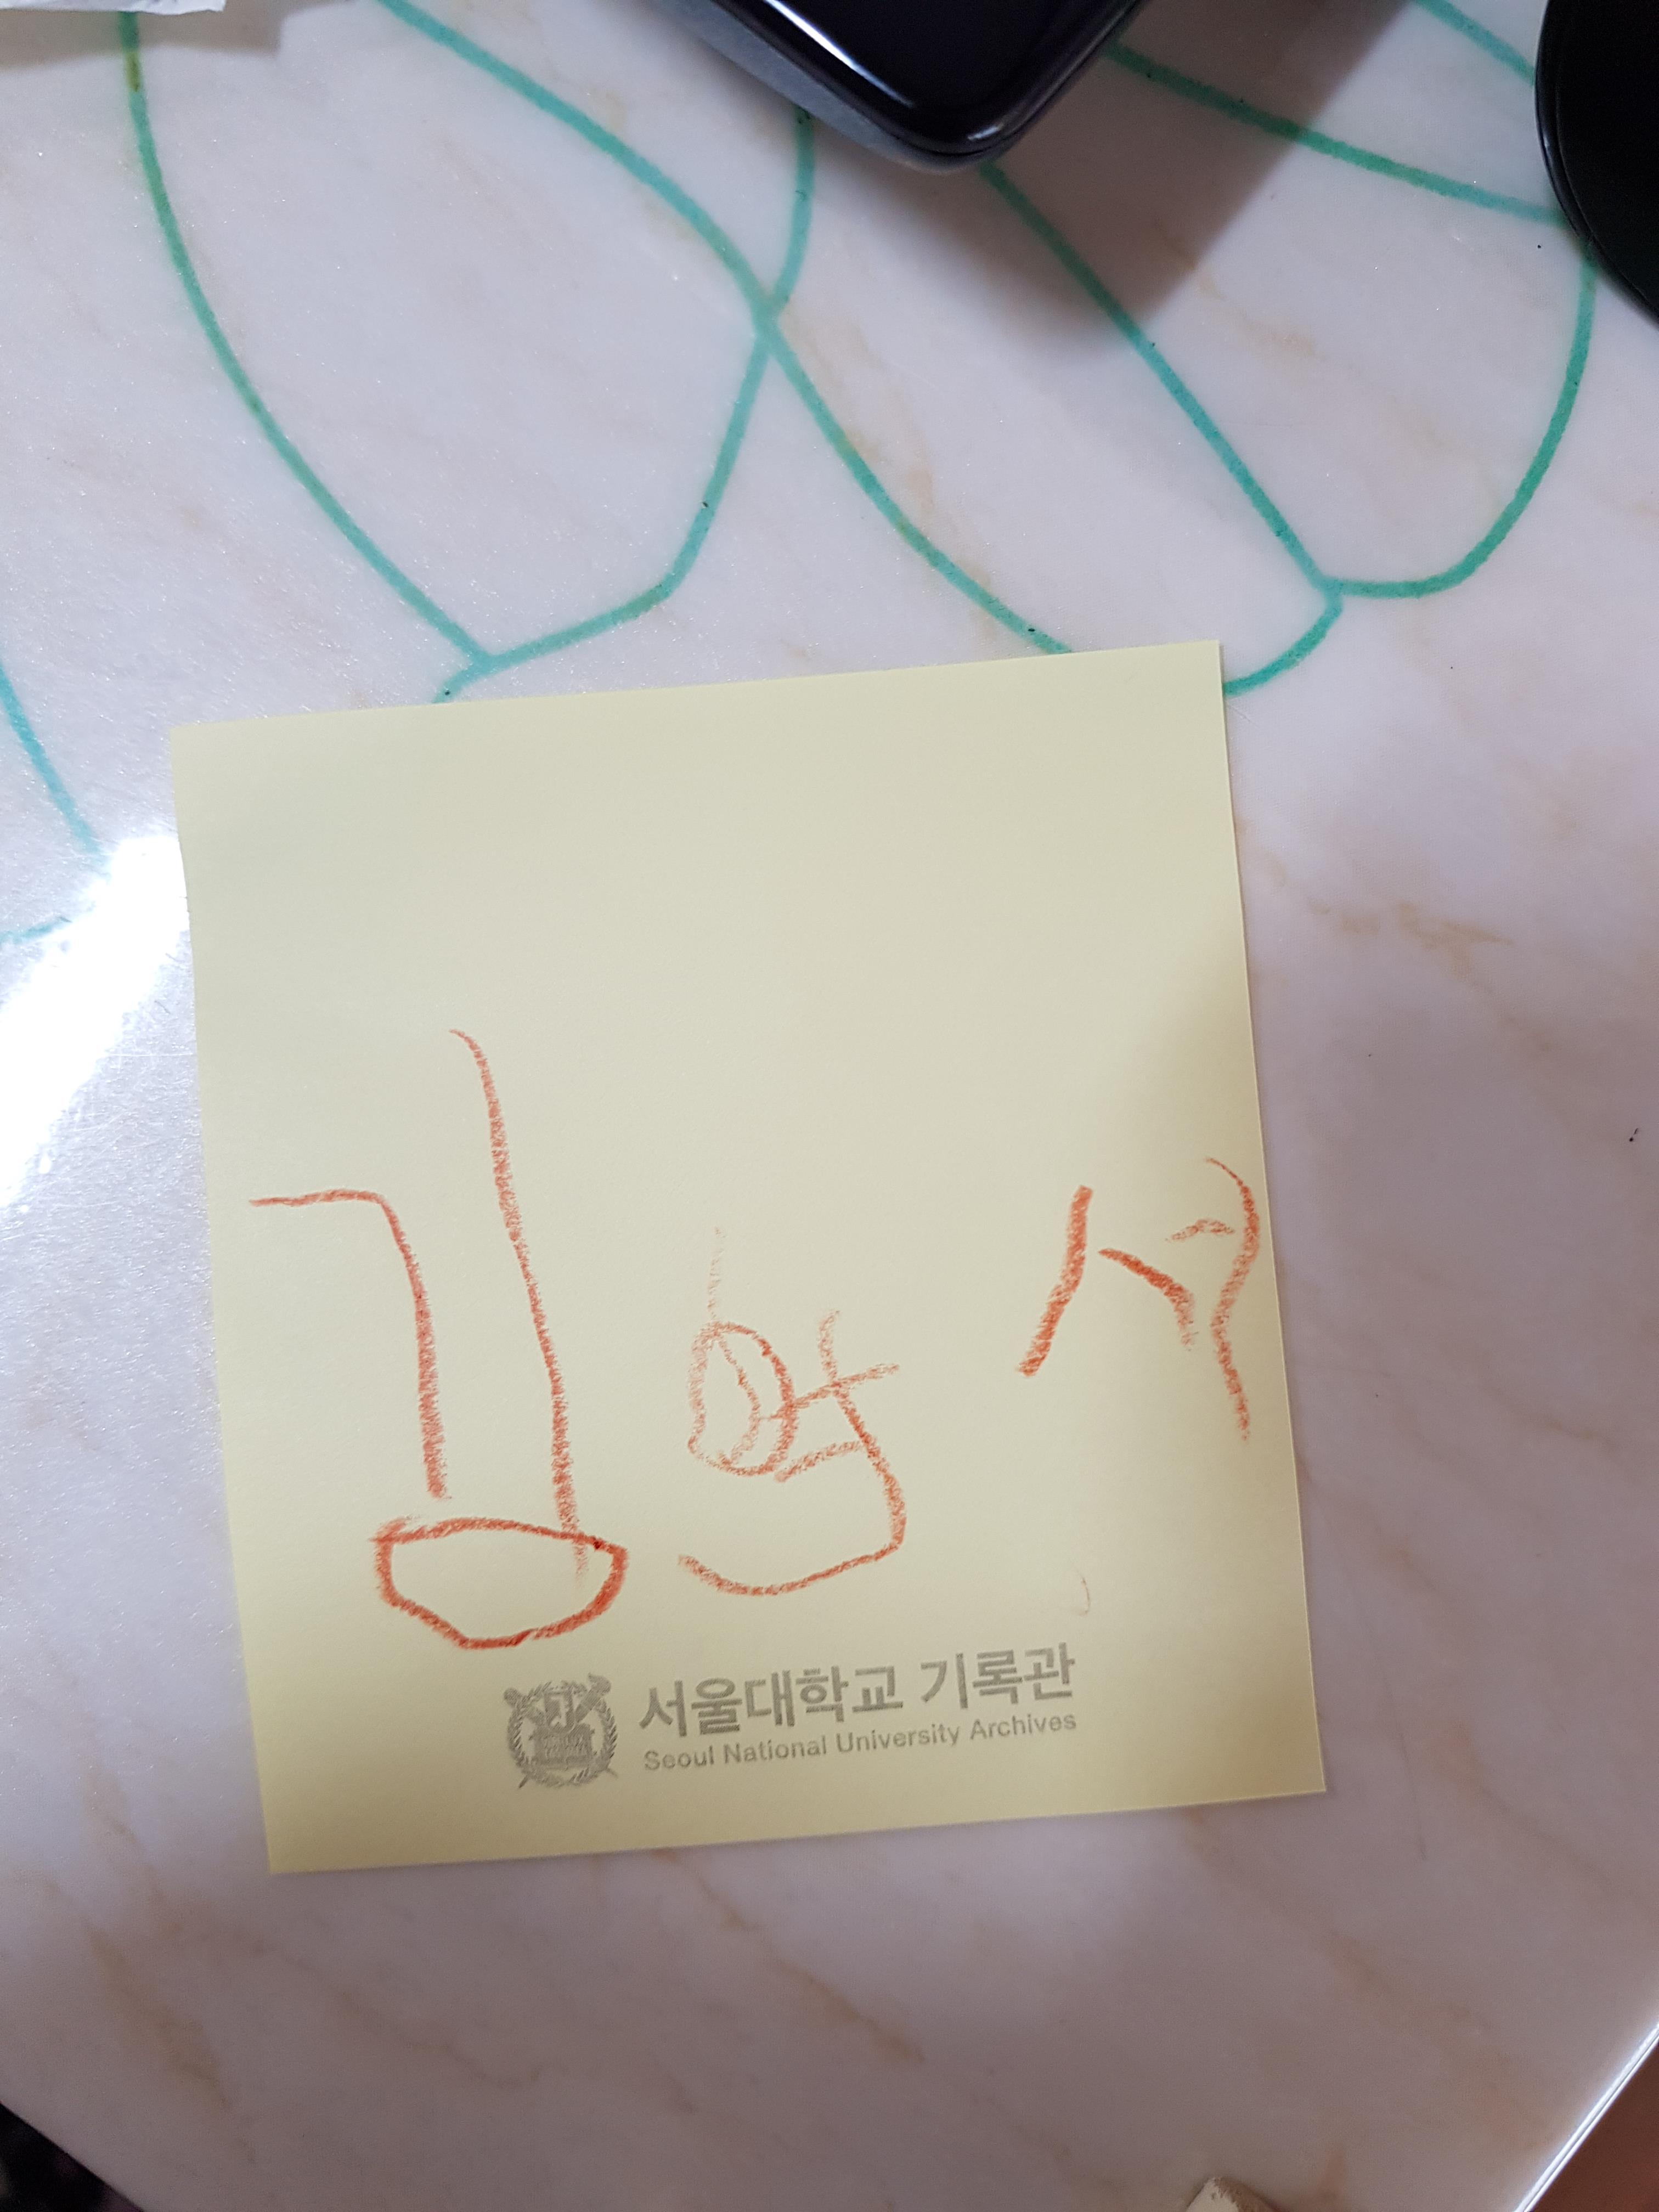 김현서
서울대학교 기록관
Seoul National University Archives